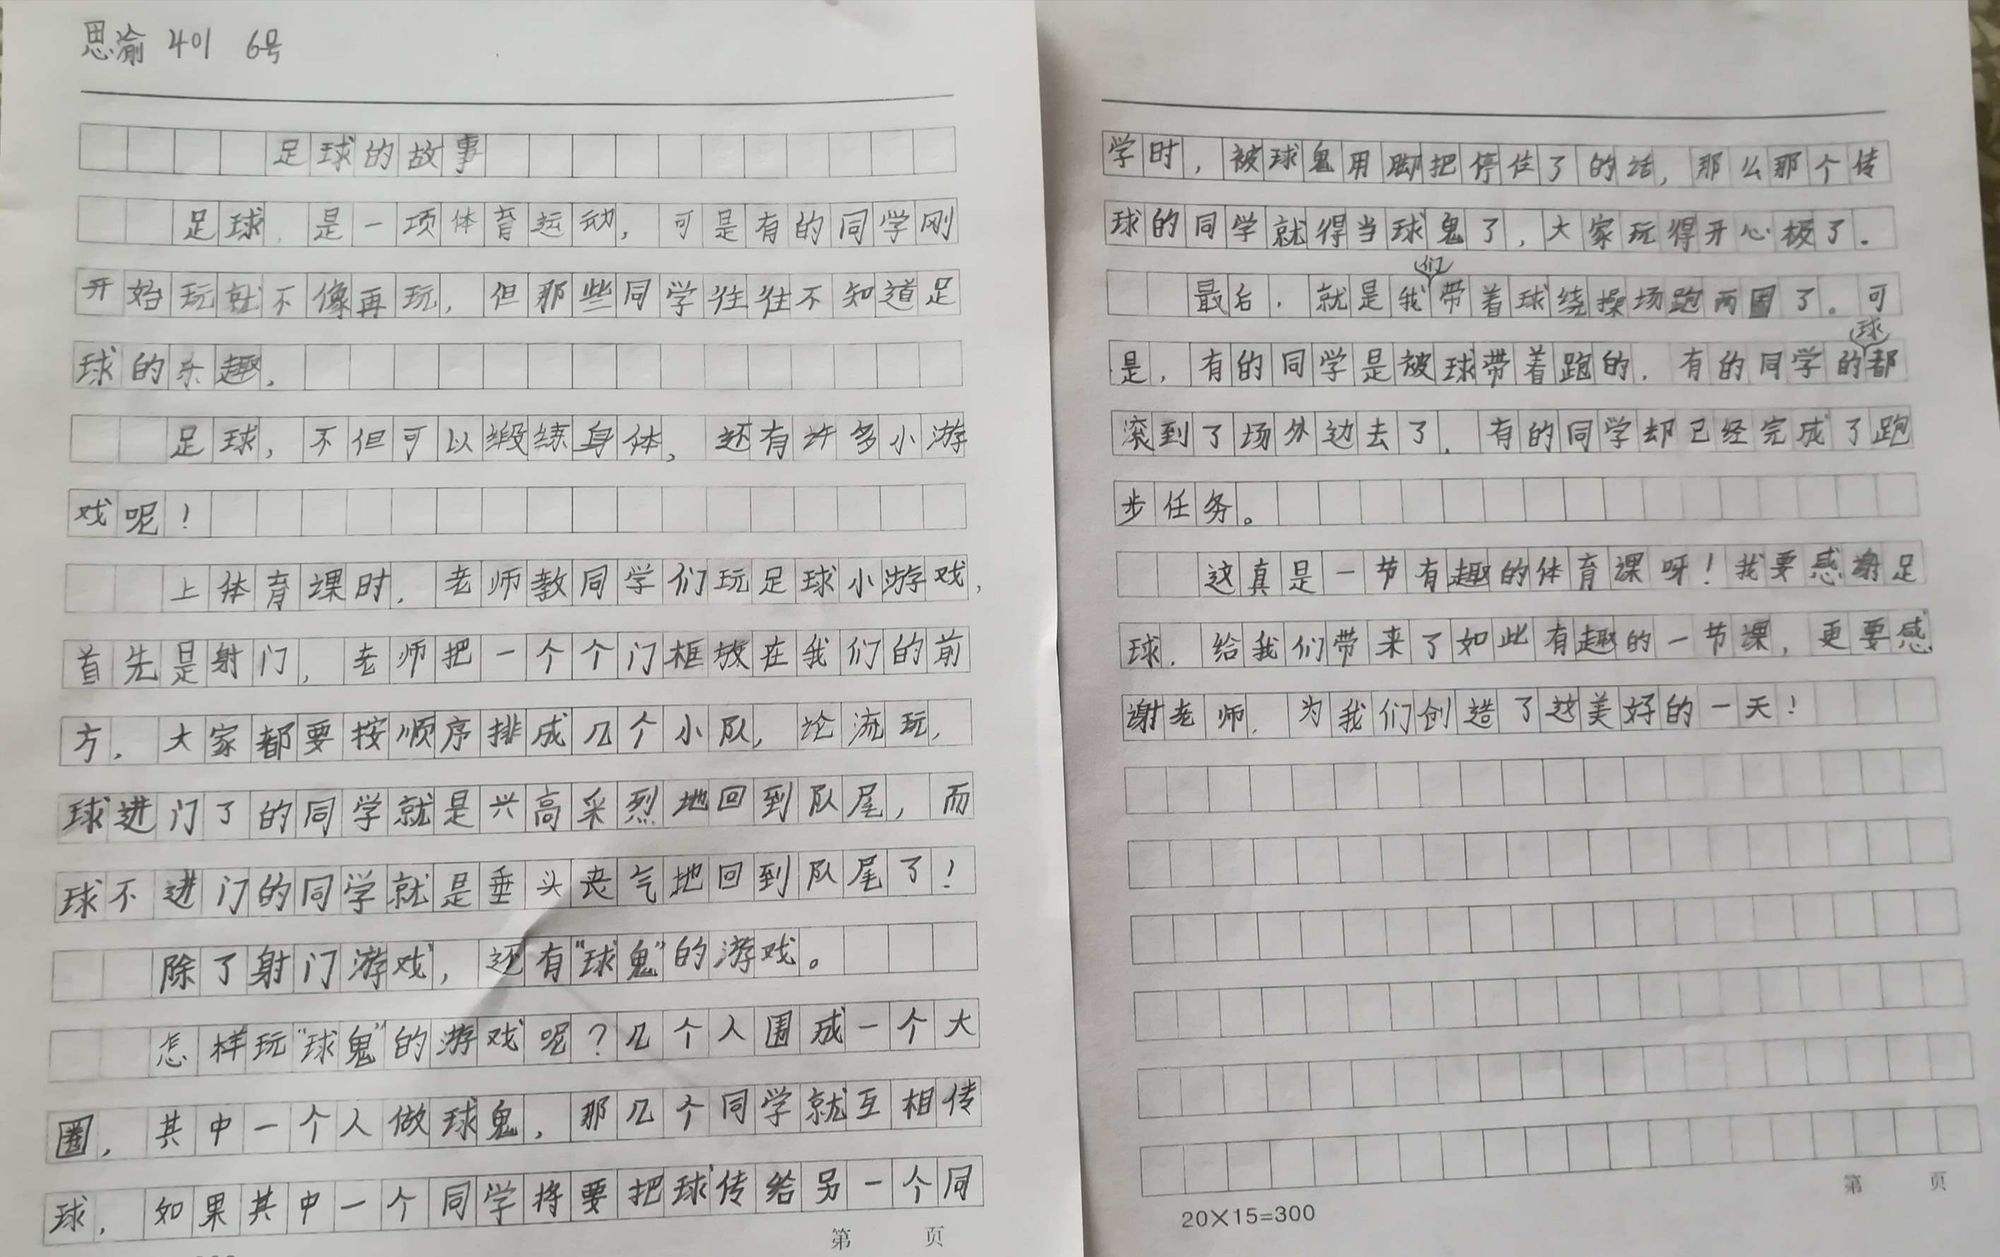 思渝 401 6号
足球的故事
足球，是一项体育运动，可是有的同学刚
开始玩就不像再玩，但那些同学往往不知道足
球的乐趣。
足球，不但可以缎练身体，还有许多小游
戏呢！
上体育课时，老师教同学们玩足球小游戏，
首先是射门，老师把一个个门框放在我们的前
方，大家都要按顺序排成几个小队，论流玩，
球进门了的同学就是兴高采烈地回到队尾，而
球不进门的同学就是垂头丧气地回到队尾了！
除了射门游戏，还有“球鬼”的游戏。
怎样玩“球鬼”的游戏呢？几个人围成一个大
圈，其中一个人做球鬼，那几个同学就互相传
球，如果其中一个同学将要把球传给另一个同
第 页
学时，被球鬼用脚把停住了的话，那么那个传
球的同学就得当球鬼了，大家玩得开心极了。
最后，就是我们带着球绕操场跑两圈了。可
是，有的同学是被球带着跑的，有的同学的球都
滚到了场外边去了，有的同学却已经完成了跑
步任务。
这真是一节有趣的体育课呀！我要感谢足
球，给我们带来了如此有趣的一节课，更要感
谢老师，为我们创造了这美好的一天！
第 页
20×15=300